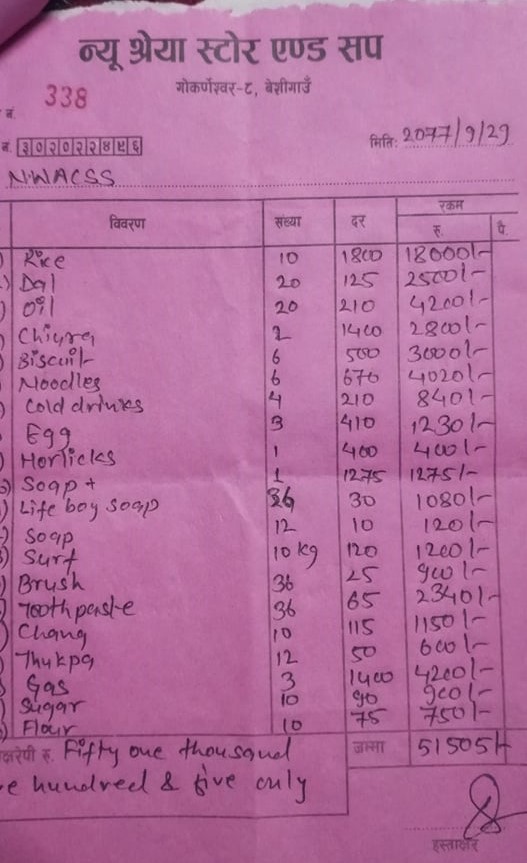 न्यू श्रेया स्टोर एण्ड सप
गोकर्णेश्वर-८, बेशीगाउँ
नं. 338
नं. ३०२०२२४९६
मिति: 2077/9/29
NWACSS
विवरण संख्या दर रकम
रु. पै.
Rice 10 1800 18000/-
Dal 20 125 2500/-
Oil 20 210 4200/-
Chiura 2 1400 2800/-
Biscuit 6 500 3000/-
Noodles 6 670 4020/-
Cold drinks 4 210 840/-
Egg 3 410 1230/-
Horlicks 1 400 400/-
Soap + 1 1275 1275/-
Life boy soap 36 30 1080/-
Soap 12 10 120/-
Surf 10 kg 120 1200/-
Brush 36 25 900/-
Toothpaste 36 65 2340/-
Chana 10 115 1150/-
Thukpa 12 50 600/-
Gas 3 1400 4200/-
Sugar 10 90 900/-
Flour 10 75 750/-
क्षरेपी रु. Fifty one thousand जम्मा 51505/-
e hundred & five only
हस्ताक्षर